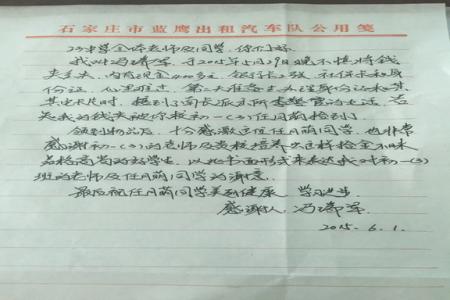 石家庄市蓝鹰出租汽车队公用笺
全体老师及同学，你们好
我叫冯瑞军，于2015年5月29日晚不慎将钱
夹丢失，内有现金400多元，银行卡2张，社保卡和身
份证，心里难过，第二天准备去办理身份证和其
其它卡片时，接到了南长派出所李警官的电话，告
知我的钱夹被你校初一(3)任月萌捡到，
领到物品后，十分感激这位任月萌同学，也非常
感谢初一(3)的老师及贵校培养出这样拾金不昧
品格高尚的好学生，以此书面形式来表达我对初一(3)
班的老师及任月萌同学的谢意。
最后祝任月萌同学美丽健康，学习进步
感谢人：冯瑞军
2015.6.1.